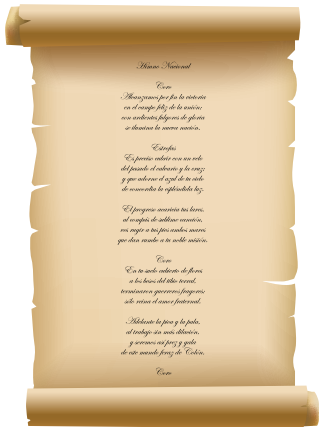 Himno Nacional
Coro
Alcanzamos por fin la victoria
en el campo feliz de la unión;
con ardientes fulgores de gloria
se ilumina la nueva nación.
Estrofas
Es preciso cubrir con un velo
del pasado el calvario y la cruz;
y que adorne el azul de tu cielo
de concordia la espléndida luz.
El progreso acaricia tus lares,
al compás de sublime canción,
ves rugir a tus pies ambos mares
que dan rumbo a tu noble misión.
Coro
En tu suelo cubierto de flores
a los besos del tibio terral,
terminaron guerreros fragores;
sólo reina el amor fraternal.
Adelante la pica y la pala,
al trabajo sin más dilación,
y seremos así prez y gala
de este mundo feraz de Colón.
Coro